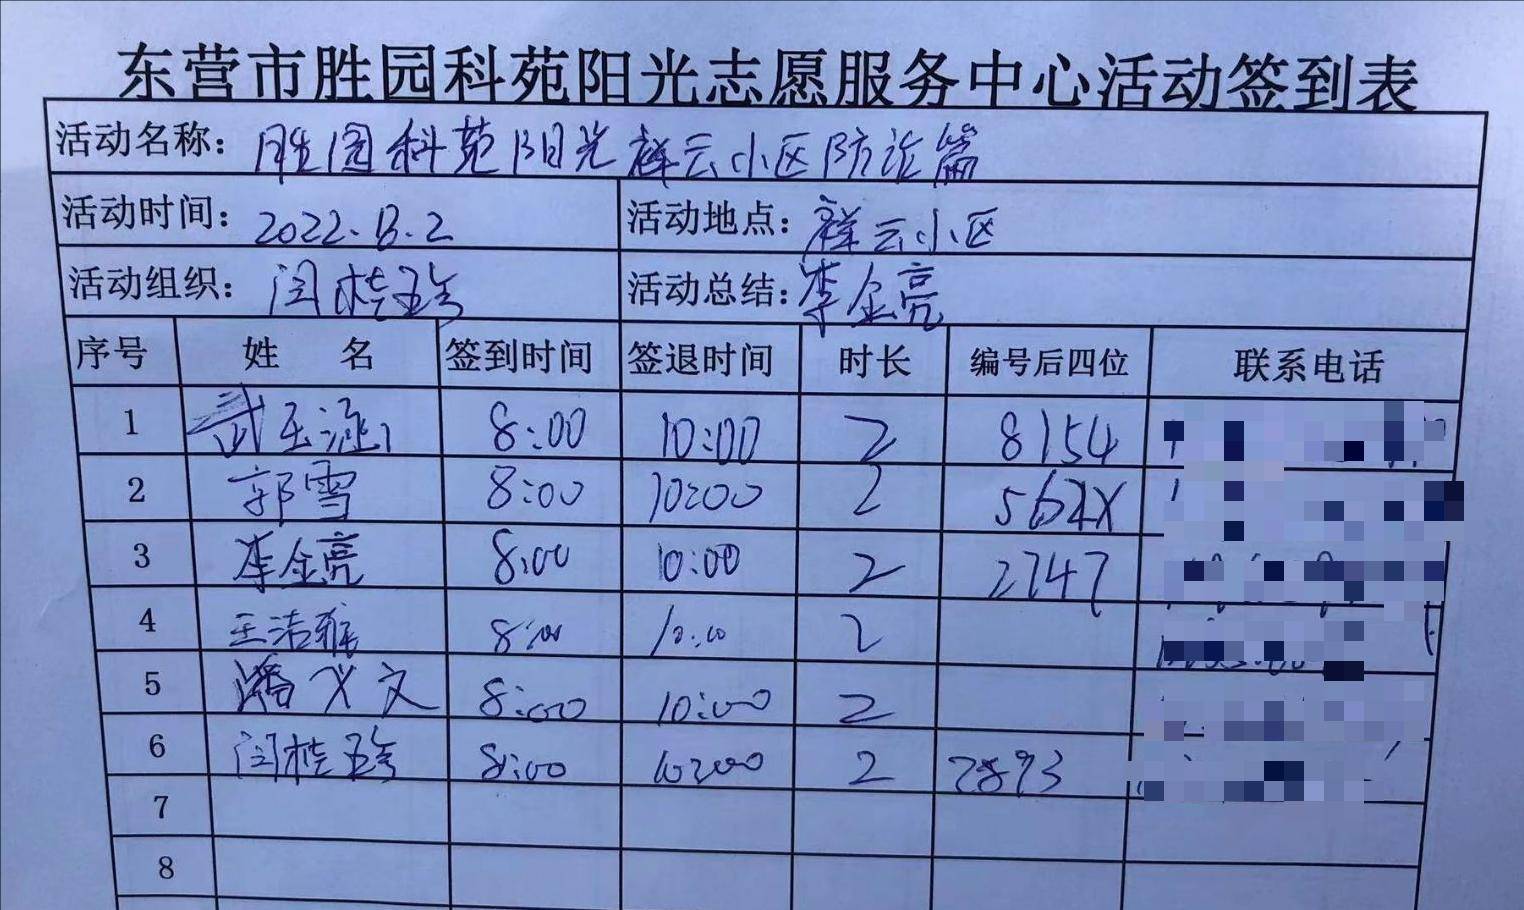 东营市胜园科苑阳光志愿服务中心活动签到表
活动名称： 胜园科苑阳光祥云小区防诈篇
活动时间： 2022.8.2 活动地点： 祥云小区
活动组织： 闫桂珍 活动总结： 李金亮
序号 姓 名 签到时间 签退时间 时长 编号后四位 联系电话
1 武玉涵 8:00 10:00 2 8154
2 郭雪 8:00 10:00 2 562X
3 李金亮 8:00 10:00 2 2747
4 王洁雅 8:00 10:00 2
5 潘义文 8:00 10:00 2
6 闫桂珍 8:00 10:00 2 2893
7
8